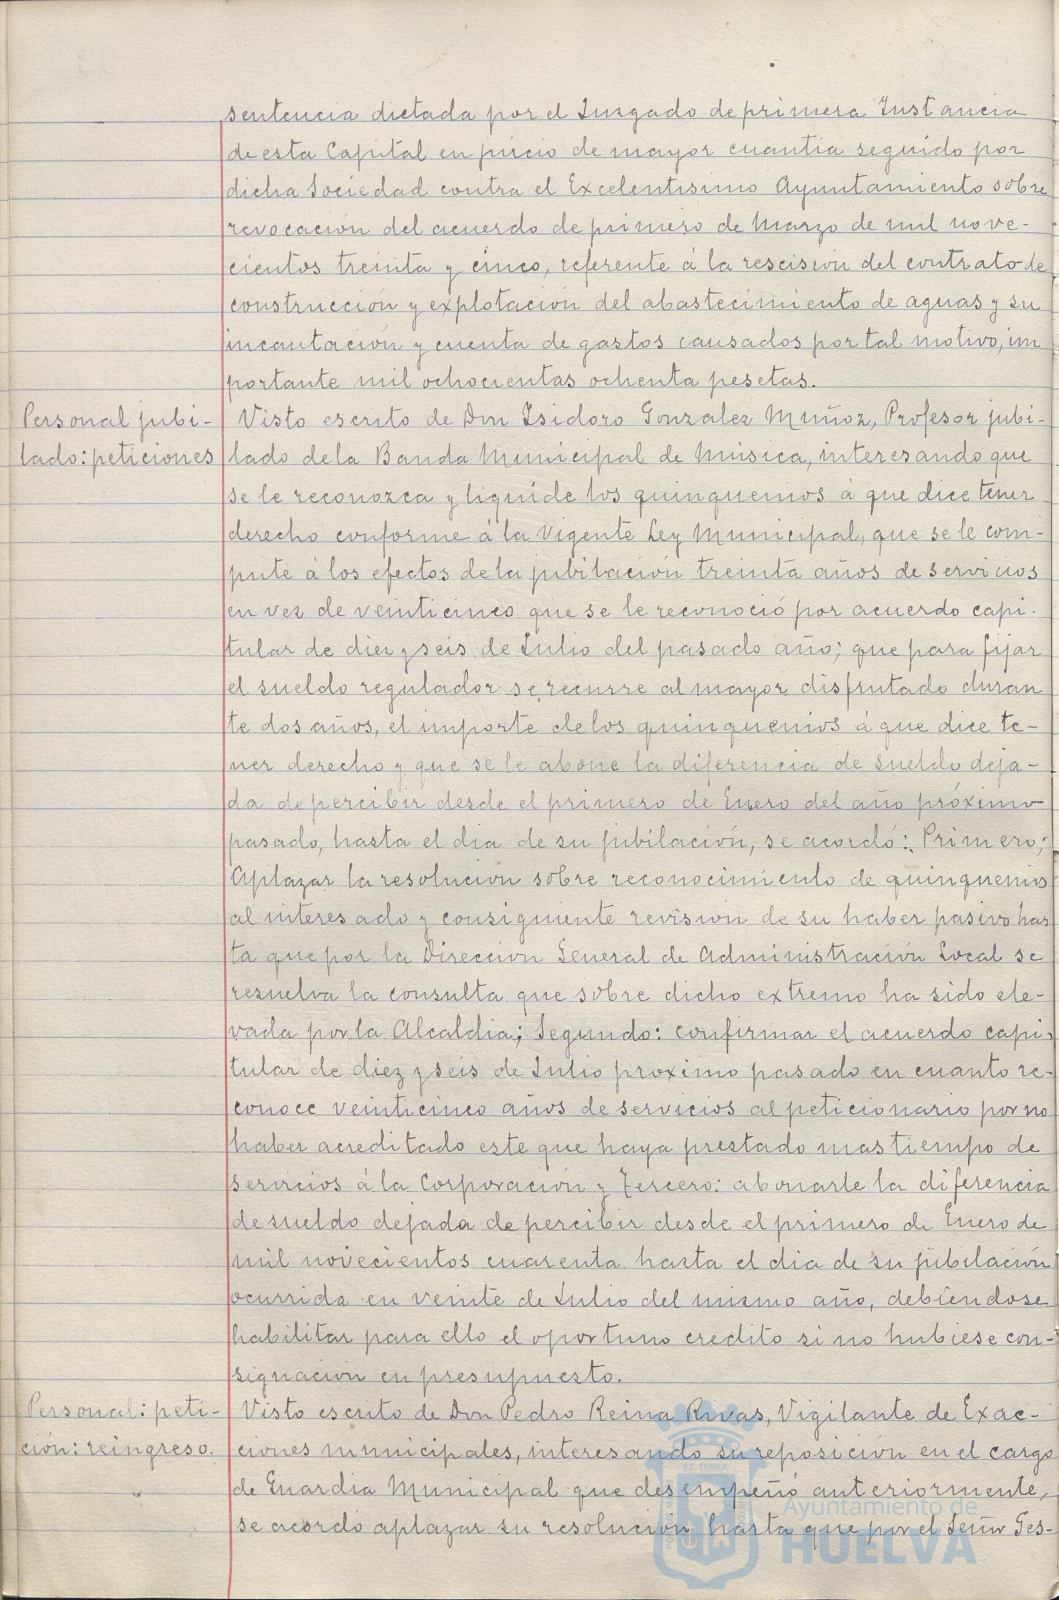 sentencia dictada por el Juzgado de primera Instancia
de esta Capital en juicio de mayor cuantia seguido por
dicha Sociedad contra el Excelentisimo Ayuntamiento sobre
revocación del acuerdo de primero de Marzo de mil nove-
cientos treinta y cinco, referente á la rescisión del contrato de
construcción y explotación del abastecimiento de aguas y su
incautación y cuenta de gastos causados por tal motivo, im
portante mil ochocientas ochenta pesetas.
Personal jubi-
lado: peticiones
Visto escrito de Don Isidoro Gonzalez Muñoz, Profesor jubi-
lado de la Banda Municipal de Música, interesando que
se le reconozca y liquide los quinquenios á que dice tener
derecho conforme á la Vigente Ley Municipal, que se le com-
pute á los efectos de la jubilación treinta años de servicios
en vez de veinticinco que se le reconoció por acuerdo capi-
tular de diez y seis de Julio del pasado año; que para fijar
el sueldo regulador se recurre al mayor disfrutado duran
te dos años, el importe de los quinquenios á que dice te-
ner derecho y que se le abone la diferencia de sueldo deja-
da de percibir desde el primero de Enero del año próximo
pasado, hasta el dia de su jubilación, se acordó: Primero;
Aplazar la resolución sobre reconocimiento de quinquenios
al interesado y consiguiente revisión de su haber pasivo has
ta que por la Dirección General de Administración Local se
resuelva la consulta que sobre dicho extremo ha sido ele-
vada por la Alcaldia; Segundo: confirmar el acuerdo capi-
tular de diez y seis de Julio proximo pasado en cuanto re-
conoce veinticinco años de servicios al peticionario por no
haber acreditado este que haya prestado mas tiempo de
servicios á la Corporación y Tercero: abonarle la diferencia
de sueldo dejada de percibir desde el primero de Enero de
mil novecientos cuarenta hasta el dia de su jubilación
ocurrida en veinte de Julio del mismo año, debiendose
habilitar para ello el oportuno credito si no hubiese con-
signación en presupuesto.
Personal: peti-
ción: reingreso.
Visto escrito de Don Pedro Reina Rivas, Vigilante de Exac-
ciones municipales, interesando su reposición en el cargo
de Guardia Municipal que desempeñó anteriormente,
se acordó aplazar su resolución hasta que por el Señor Ges-
Ayuntamiento de
HUELVA